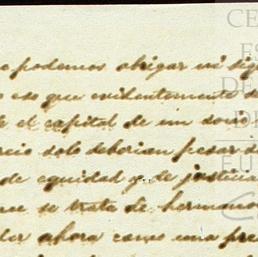 podemos abrigar ni
eso que evidentemente
el capital de un
solo deberian pesar
de equidad y de justicia
se trata de hermano
ahora como una pre
CE
ES
DE
DE
EU